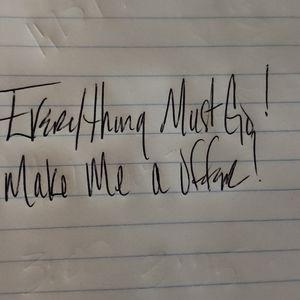 Everything Must Go!
Make Me a Offer!